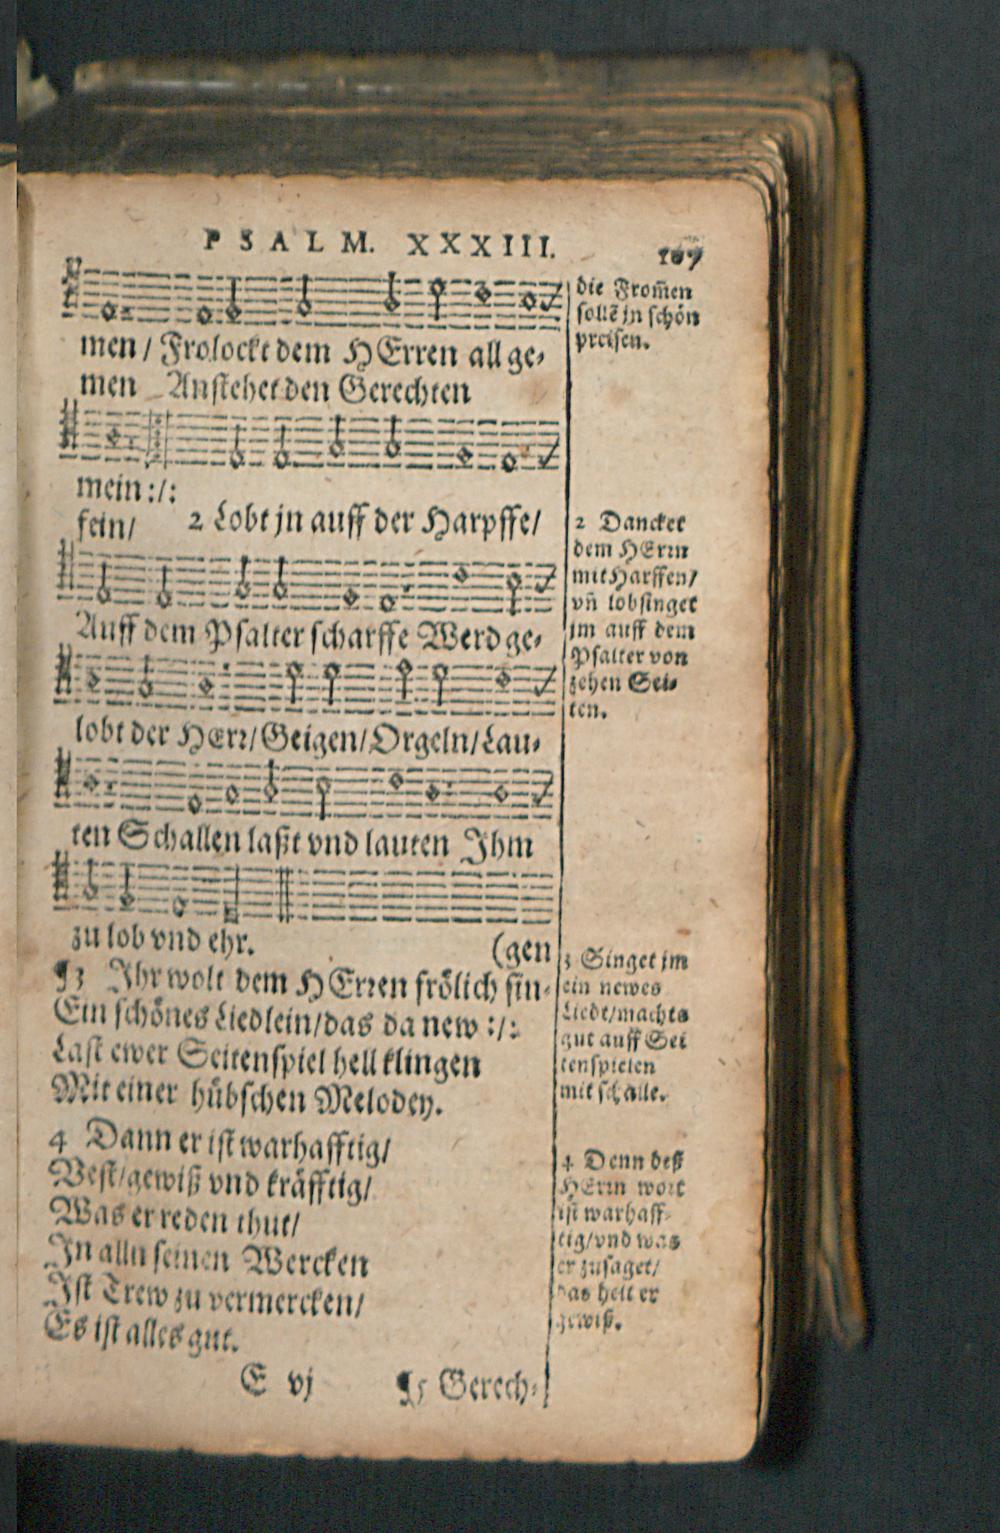 PSALM. XXXIII. 107
men / Frolockt dem HErren all ge⸗
men Anstehet den Gerechten
mein :/:
fein/ 2 Lobt jn auff der Harpffe/
Auff dem Psalter scharffe Werd ge⸗
lobt der Herr/Geigen/Orgeln/Lau⸗
ten Schallen laßt vnd lauten Ihm
zu lob vnd ehr. (gen
¶3 Ihr wolt dem HErren frölich sin⸗
Ein schönes Liedlein/das da new :/:
Last ewer Seitenspiel hell klingen
Mit einer hübschen Melodey.
4 Dann er ist warhafftig/
Vest/gewiß vnd kräfftig/
Was er reden thut/
In alln seinen Wercken
Ist Trew zu vermercken/
Es ist alles gut.
E vj ¶5 Gerech⸗
die From̃en
sollẽ jn schön
preisen.
2 Dancket
dem HErrn
mit Harffen/
vñ lobsinget
jm auff dem
Psalter von
zehen Sei⸗
ten.
3 Singet jm
ein newes
Liedt/machts
gut auff Sei
tenspielen
mit schalle.
4 Denn deß
HErrn wort
ist warhaff⸗
tig/vnd was
er zusaget/
das helt er
gewiß.